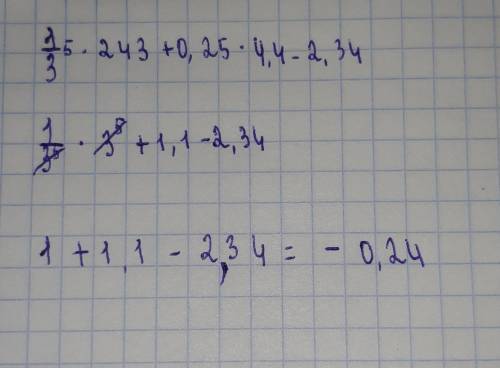 1/3⁵ · 243 + 0,25 · 4,4 - 2,34
1/3⁵ · 3⁵ + 1,1 - 2,34
1 + 1,1 - 2,34 = - 0,24